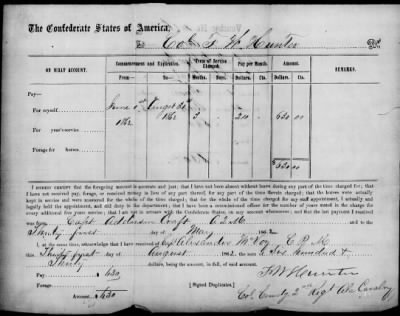 The Confederate States of America,
To Col F. W. Hunter Dr.
ON WHAT ACCOUNT.
Commencement and Expiration.
Term of Service Charged.
Pay per Month.
Amount.
REMARKS.
From—
To—
Months.
Days.
Dollars.
Cts.
Dollars.
Cts.
Pay—
For myself
June 1st
1862
August 31
1862
3
210
630 00
For year's service
Forage for horses.
$630 00
I HEREBY CERTIFY that the foregoing amount is accurate and just; that I have not been absent without leave during any part of the time charged for; that
I have not received pay, forage, or received money in lieu of any part thereof, for any part of the time therein charged; that the horses were actually
kept in service and were mustered for the whole of the time charged; that for the whole of the time charged for my staff appointment, I actually and
legally held the appointment, and did duty in the department; that I have been a commissioned officer for the number of years stated in the charge for
every additional five years service; that I am not in arrears with the Confederate States, on any account whatsoever; and that the last payment I received
was from Capt Addison Craft A.Q.M. and to the
Thirty first day of May 1862.
I, at the same time, acknowledge that I have received of Capt Alexander McCoy C.P.M
this Thirty first day of August 1862 Six Hundred &
Thirty dollars, being the amount, in full, of said account.
Pay - - - $ 630
Forage - -
Amount - $ 630
F W Hunter
[Signed Duplicates.]
Col Comdg 2nd Regt Ark Cavalry